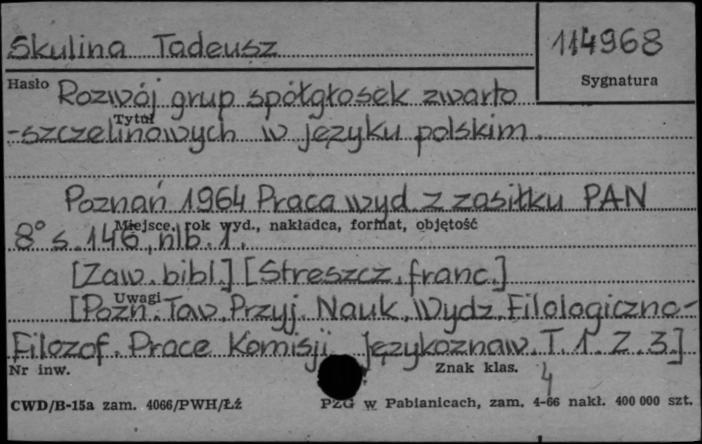 Skulina Tadeusz
114968
Hasło
Sygnatura
Rozwój grup spółgłosek zwarto
Tytuł
-szczelinowych w języku polskim.
Poznań 1964 Praca wyd. z zasiłku PAN
Miejsce, rok wyd., nakładca, format, objętość
8° s. 146, nlb. 1.
[Zaw. bibl.] [Streszcz. franc.]
Uwagi
[Pozn. Tow. Przyj. Nauk. Wydz. Filologiczno-
Filozof. Prace Komisji Językoznaw. T. 1. Z. 3.]
Nr inw.
Znak klas.
4
CWD/B-15a zam. 4066/PWH/Łź
PZG w Pabianicach, zam. 4-66 nakł. 400 000 szt.